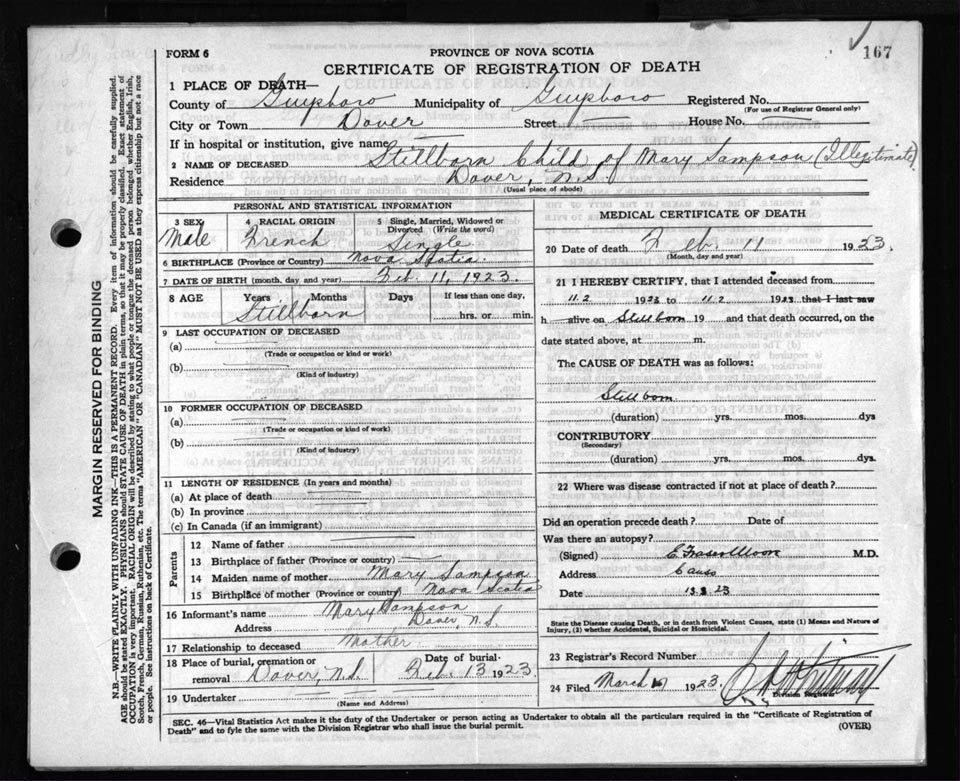 167
FORM 6
PROVINCE OF NOVA SCOTIA
CERTIFICATE OF REGISTRATION OF DEATH
1 PLACE OF DEATH—
County of Guysboro Municipality of Guysboro Registered No.
(For use of Registrar General only)
City or Town Dover Street House No.
If in hospital or institution, give name
2 NAME OF DECEASED Stillborn Child of Mary Sampson (Illegitimate)
Residence Dover, N.S.
(Usual place of abode)
PERSONAL AND STATISTICAL INFORMATION
3 SEX 4 RACIAL ORIGIN 5 Single, Married, Widowed or Divorced (Write the word)
Male French Single
6 BIRTHPLACE (Province or Country) Nova Scotia
7 DATE OF BIRTH (month, day and year) Feb. 11, 1923.
8 AGE Years Months Days If less than one day,
Stillborn hrs. or min.
9 LAST OCCUPATION OF DECEASED
(a)
(Trade or occupation or kind or work)
(b)
(Kind of industry)
10 FORMER OCCUPATION OF DECEASED
(a)
(Trade or occupation or kind of work)
(b)
(Kind of industry)
11 LENGTH OF RESIDENCE (In years and months)
(a) At place of death
(b) In province
(c) In Canada (if an immigrant)
Parents
12 Name of father
13 Birthplace of father (Province or country)
14 Maiden name of mother Mary Sampson
15 Birthplace of mother (Province or country) Nova Scotia
16 Informant's name Mary Sampson
Address Dover, N.S.
17 Relationship to deceased Mother
18 Place of burial, cremation or removal Dover, N.S. Date of burial- Feb. 13 1923.
19 Undertaker
(Name and Address)
MEDICAL CERTIFICATE OF DEATH
20 Date of death Feb. 11 1923.
(Month, day and year)
21 I HEREBY CERTIFY, that I attended deceased from
11.2 1923 to 11.2 1923 that I last saw
h alive on Stillborn 19 and that death occurred, on the
date stated above, at m.
The CAUSE OF DEATH was as follows:
Stillborn
(duration) yrs. mos. dys
CONTRIBUTORY
(Secondary)
(duration) yrs. mos. dys.
22 Where was disease contracted if not at place of death?
Did an operation precede death? Date of
Was there an autopsy?
(Signed) C. Fraser Moore M.D.
Address Canso
Date 23
State the Disease causing Death, or in death from Violent Causes, state (1) Means and Nature of
Injury, (2) whether Accidental, Suicidal or Homicidal.
23 Registrar's Record Number
24 Filed March 1923.
Division Registrar
SEC. 46—Vital Statistics Act makes it the duty of the Undertaker or person acting as Undertaker to obtain all the particulars required in the "Certificate of Registration of
Death" and to fyle the same with the Division Registrar who shall issue the burial permit.
(OVER)
MARGIN RESERVED FOR BINDING
N.B.—WRITE PLAINLY WITH UNFADING INK—THIS IS A PERMANENT RECORD. Every item of information should be carefully supplied.
AGE should be stated EXACTLY. PHYSICIANS should STATE CAUSE OF DEATH in plain terms, so that it may be properly classified. Exact statement of
OCCUPATION is very important. RACIAL ORIGIN will be described by stating to what people or tongue the deceased person belonged whether English, Irish,
Scotch, French, German, Russian, Ruthenian, etc. The terms "AMERICAN" or "CANADIAN" MUST NOT BE USED as they express citizenship but not a race
or people. See instructions on back of Certificate.